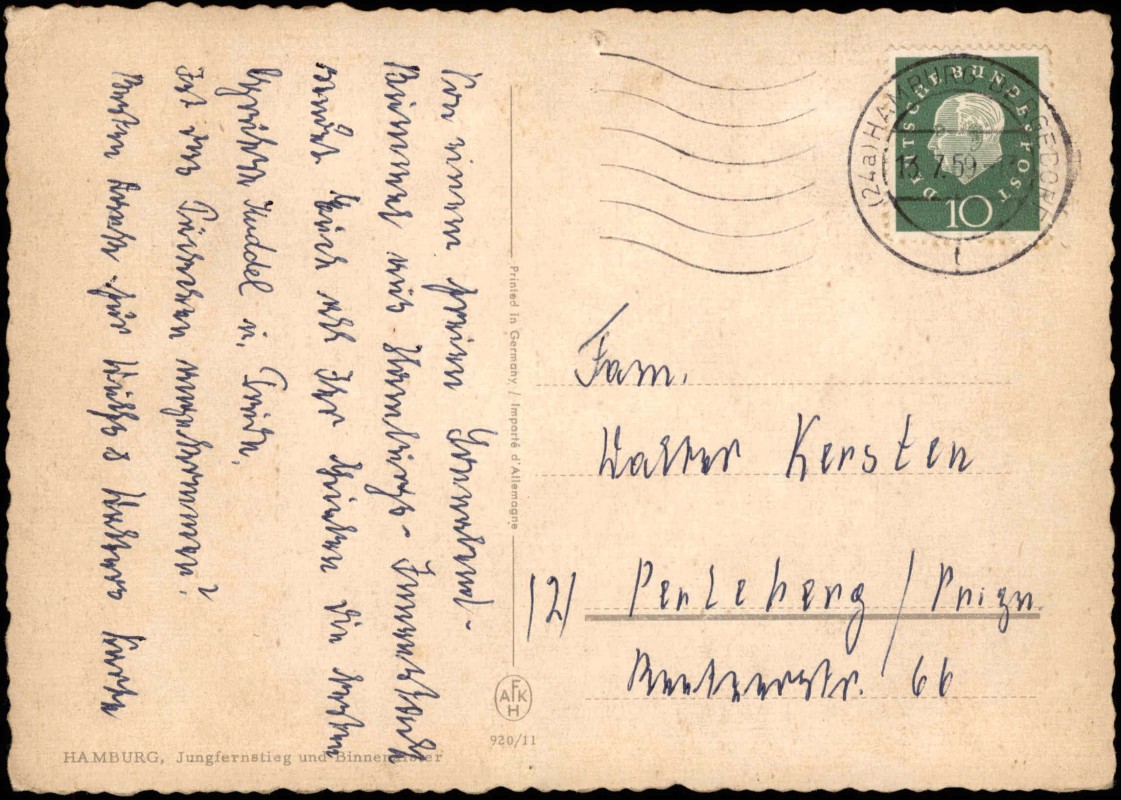 Von einem freien Sonnabend-
Bummel aus Hamburgs-Innenstadt
sendet Euch all Ihr Lieben die besten
Grüße Kuddel u.
Ist das Päckchen angekommen?
Besten Dank für Käthe & Walters Karte
HAMBURG, Jungfernstieg und Binnenalster
Printed in Germany / Importé d'Allemagne
AFKH
920/11
DEUTSCHE BUNDESPOST
10
(24a) HAMBURG-BERGEDORF
13.7.59
1
Fam.
Walter Kersten
(2) Perleberg / Prign.
Reetzerstr. 66